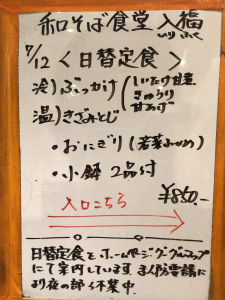 和そば食堂 入福
いり ふく
7/12 〈日替定食〉
冷) ぶっかけ (しいたけ甘煮
きゅうり
甘あげ
温) きざみとじ
・おにぎり (若菜みかめ)
・小鉢 2品付
¥850.-
入口こちら
日替定食を、ホームページ、グーグルマップ
にて案内しています。まん防要請に
より夜の部は休業中。